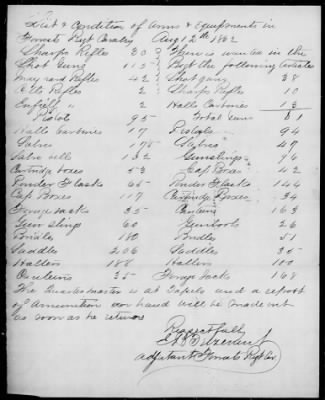 List & Condition of Arms & Equipments in
Regt Cavalry Aug 12th 1862
Sharps Rifles 30 There is wanted in the
Shot Guns 115 Regt the following articles
Maynard Rifles 42 Shot guns 38
Colts Rifles 2 Sharps Rifles 10
Enfield " 2 Halls Carbines 13
Pistols 95 Total Guns 61
Halls Carbines 17 Pistols 94
Sabres 175 Sabres 47
Sabre belts 132 Gunslings 96
Cartridge boxes 53 Cap Boxes 42
Powder Flasks 65 Powder Flasks 144
Cap Boxes 117 Cartridge Boxes 34
35 Canteens 163
Gun Slings 60 26
Bridles 180 Bridles 51
Saddles 206 Saddles 35
Halters 188 Halters 100
Canteens 35 168
The Quartermaster is at Tupelo and a report
of Amunition on hand will be made out
as soon as he returns
Respectfully
Adjutant Regt Cav